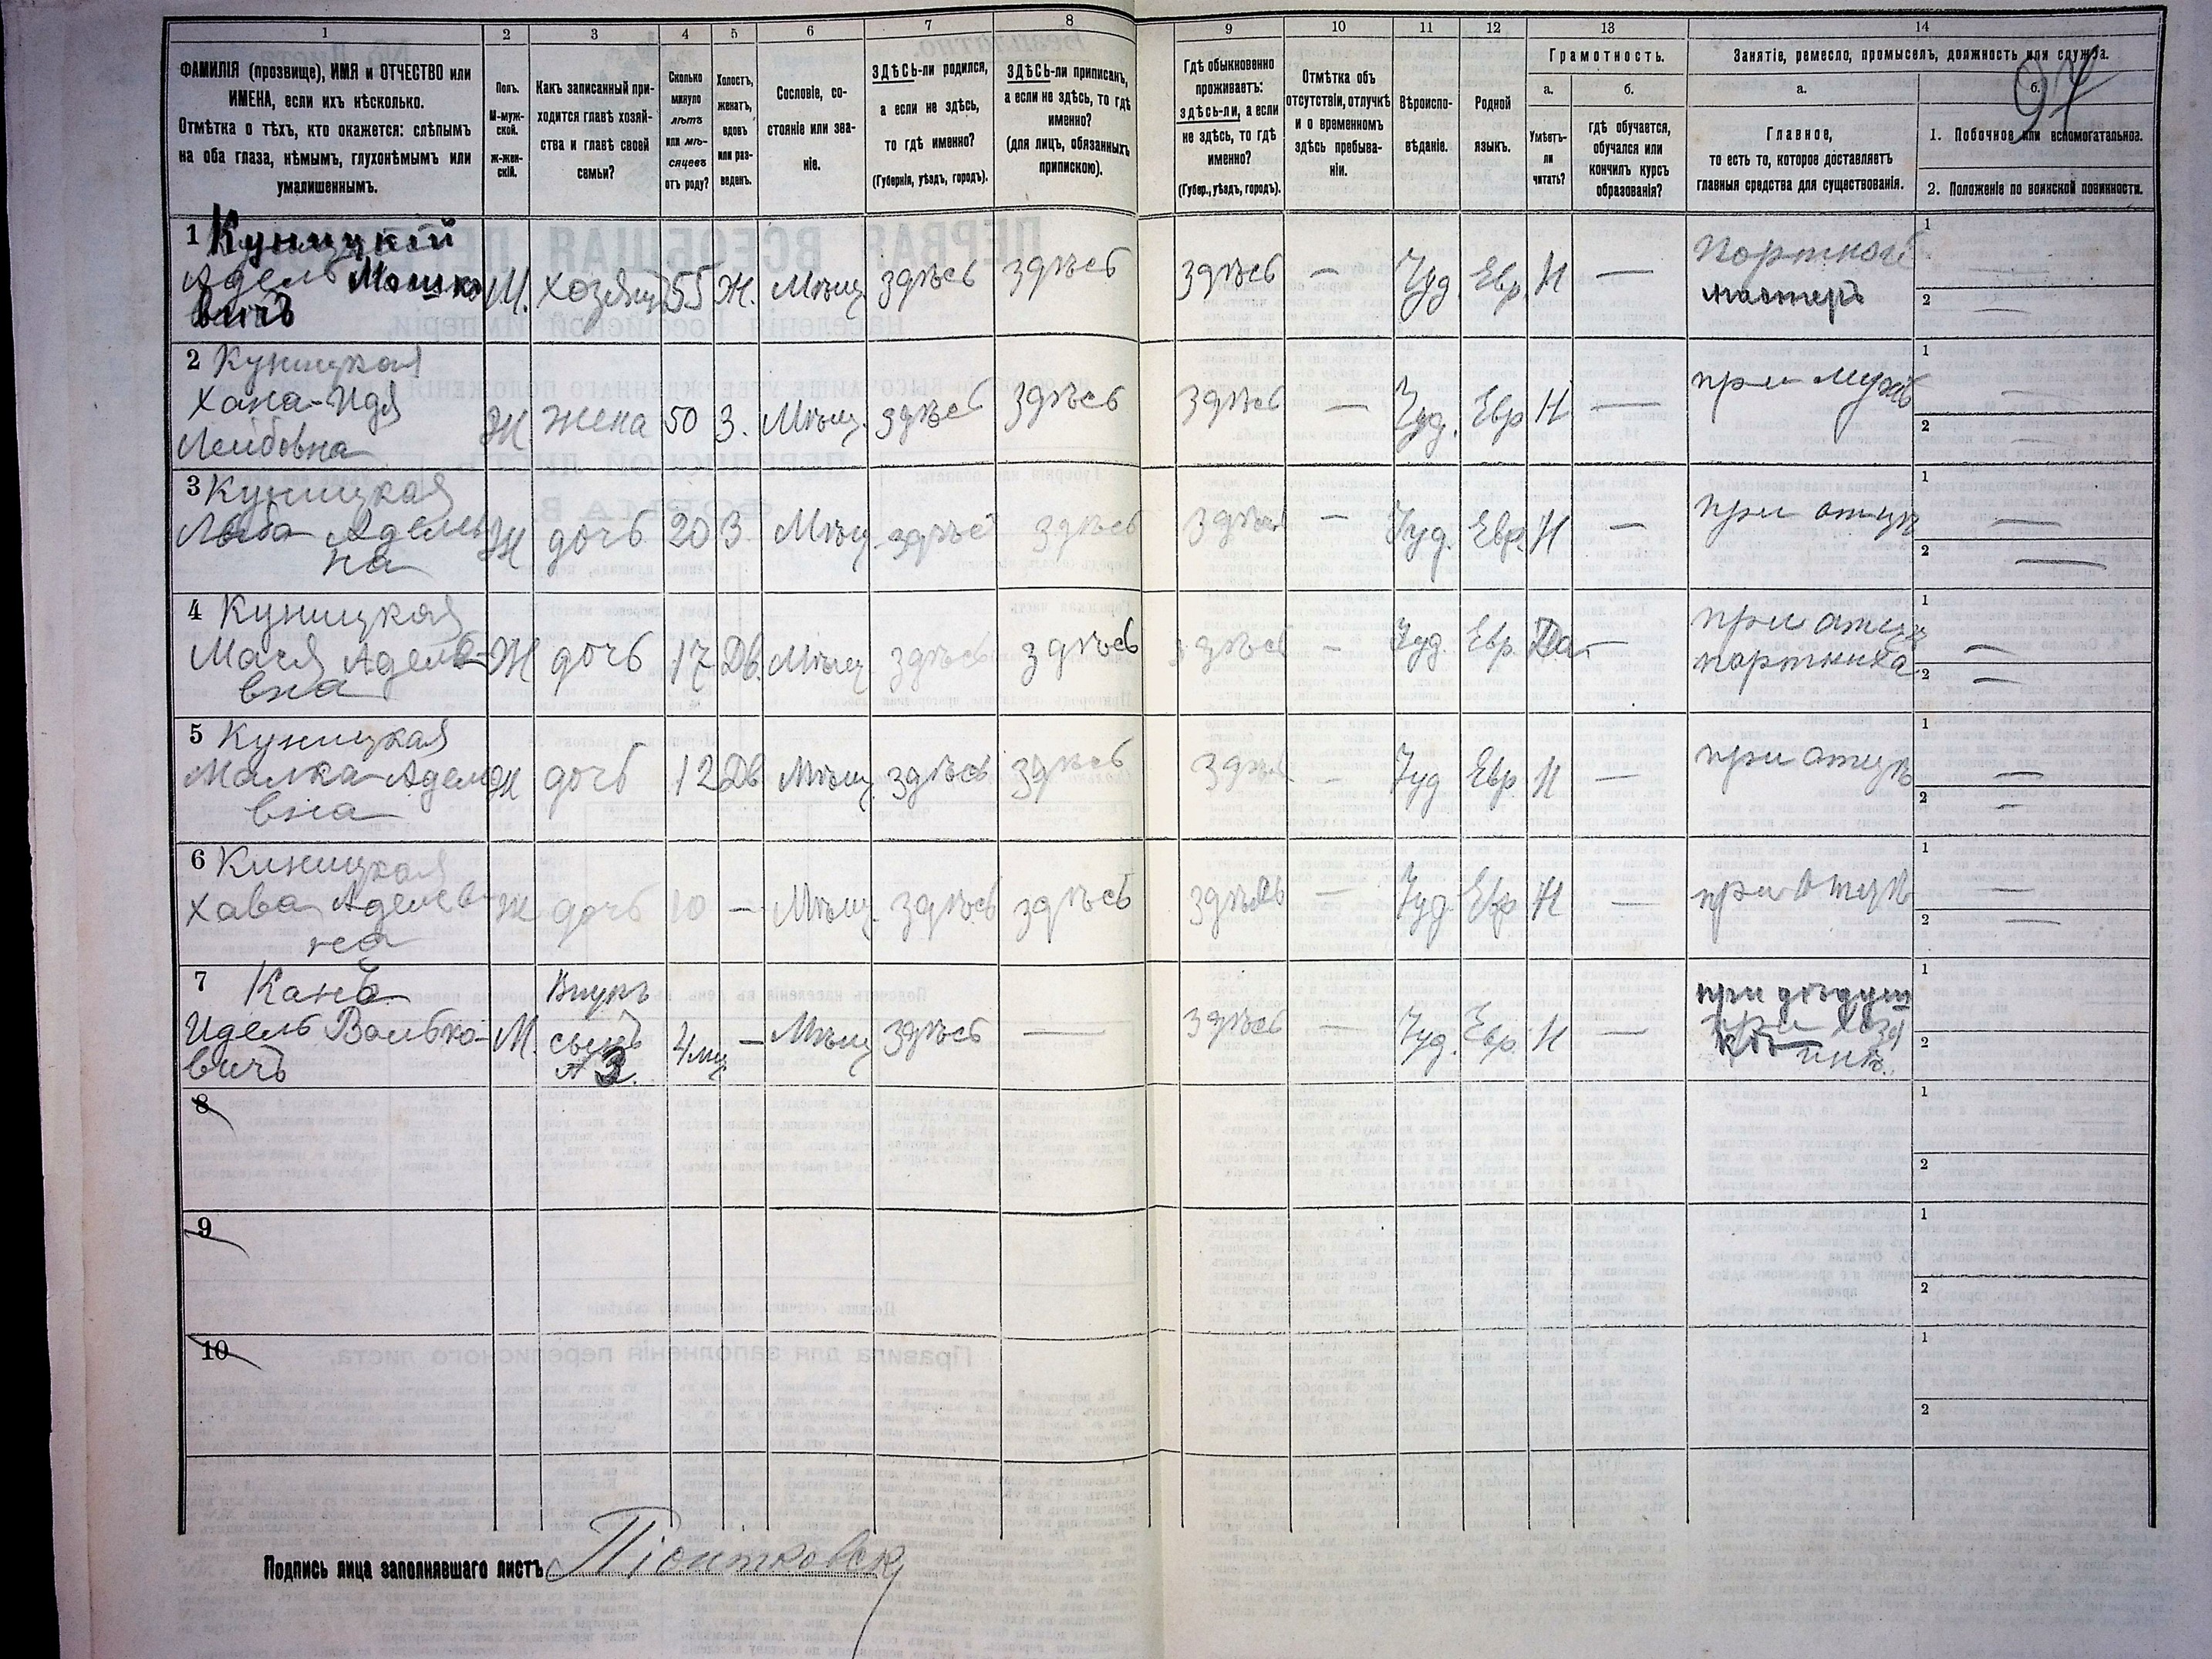 1 2 3 4 5 6 7 8 9 10 11 12 13 14
ФАМИЛІЯ (прозвище), ИМЯ и ОТЧЕСТВО или
ИМЕНА, если ихъ нѣсколько.
Отмѣтка о тѣхъ, кто окажется: слѣпымъ
на оба глаза, нѣмымъ, глухонѣмымъ или
умалишеннымъ.
Полъ.
М-муж-
ской.
ж-жен-
скій.
Какъ записанный при-
ходится главѣ хозяй-
ства и главѣ своей
семьи?
Сколько
минуло
лѣтъ
или мѣ-
сяцевъ
отъ роду?
Холостъ,
женатъ,
вдовъ
или раз-
веденъ.
Сословіе, со-
стояніе или зва-
ніе.
ЗДѢСЬ-ли родился,
а если не здѣсь,
то гдѣ именно?
(Губернія, уѣздъ, городъ).
ЗДѢСЬ-ли приписанъ,
а если не здѣсь, то гдѣ
именно?
(для лицъ, обязанныхъ
припискою).
Гдѣ обыкновенно
проживаетъ:
здѣсь-ли, а если
не здѣсь, то гдѣ
именно?
(Губер., уѣздъ, городъ).
Отмѣтка объ
отсутствіи, отлучкѣ
и о временномъ
здѣсь пребыва-
ніи.
Вѣроиспо-
вѣданіе.
Родной
языкъ.
Грамотность.
а.
Умѣетъ-
ли
читать?
б.
гдѣ обучается,
обучался или
кончилъ курсъ
образованія?
Занятіе, ремесло, промыселъ, должность или служба.
97
а.
Главное,
то есть то, которое доставляетъ
главныя средства для существованія.
б.
1. Побочное или вспомогательное.
2. Положеніе по воинской повинности.
1 Куницкій
Адель Мошко
вичъ
М. хозяинъ 55 Ж. Мѣщ здѣсь здѣсь здѣсь — Іуд. Евр. Н —
Портной
мастеръ
1 —
2 —
2 Куницкая
Хана-Идя
Лейбовна
Ж. жена 50 З. Мѣщ. здѣсь здѣсь здѣсь — Іуд. Евр Н —
при мужѣ
1 —
2 —
3 Куницкая
Люба Адельв
на
Ж дочь 20 З. Мѣщ здѣсь здѣсь здѣсь — Іуд. Евр. Н —
при отцѣ
1 —
2 —
4 Куницкая
Мася Адель-
вна
Ж дочь 17 Дв. Мѣщ здѣсь здѣсь здѣсь — Іуд. Евр. Да —
при отцѣ
портниха
1 —
2 —
5 Куницкая
Малка Адель
вна
Ж дочь 12 Дв Мѣщ здѣсь здѣсь здѣсь — Іуд Евр. Н —
при отцѣ
1 —
2 —
6 Киницкая
Хава Аделев-
на
Ж дочь 10 — Мѣщ. здѣсь здѣсь здѣсь — Іуд. Евр Н —
при отцѣ
1 —
2 —
7 Канъ
Идель Волько-
вичъ
М.
Внукъ
сынъ
№ 3.
4 мц — Мѣщ здѣсь — здѣсь — Іуд. Евр. Н —
при дѣдуш
при хозя
кѣ инѣ.
1
2
8
1
2
9
1
2
10
1
2
Подпись лица заполнявшаго листъ